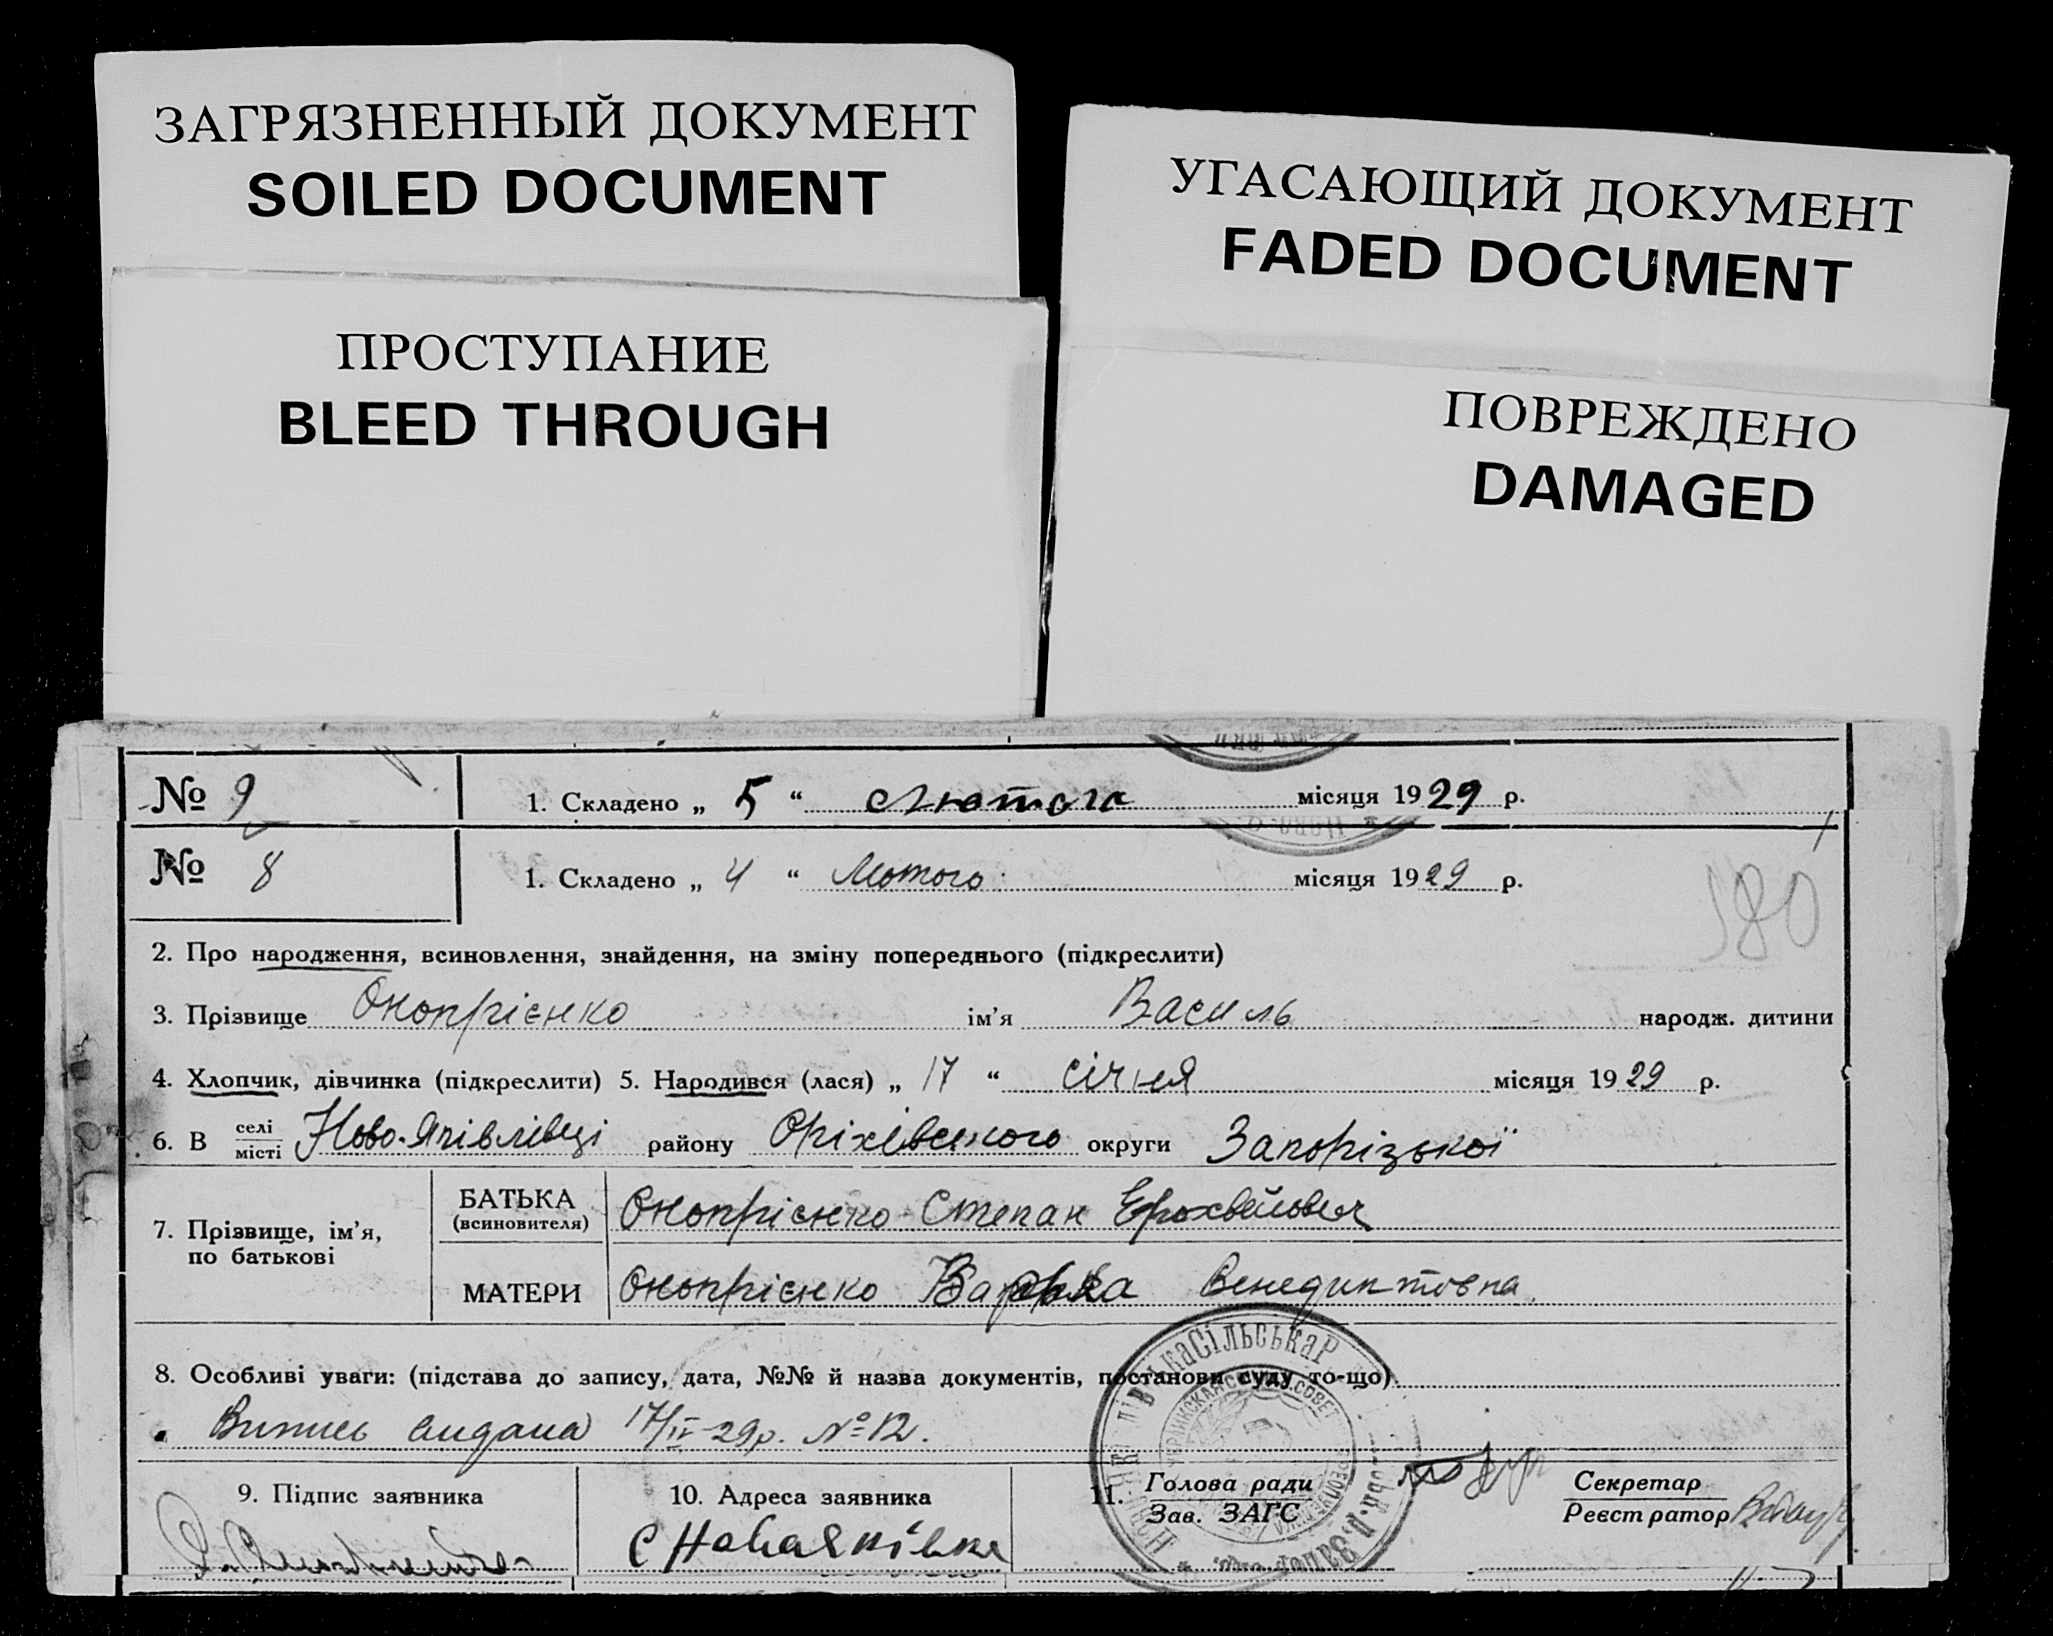 ЗАГРЯЗНЕННЫЙ ДОКУМЕНТ
SOILED DOCUMENT
УГАСАЮЩИЙ ДОКУМЕНТ
FADED DOCUMENT
ПРОСТУПАНИЕ
BLEED THROUGH
ПОВРЕЖДЕНО
DAMAGED
№ 9 1. Складено „ 5 “ Лютого місяця 1929 р.
№ 8 1. Складено „ 4 “ Лютого місяця 1929 р.
380
2. Про народження, всиновлення, знайдення, на зміну попереднього (підкреслити)
3. Прізвище Онопрієнко ім'я Василь народж. дитини
4. Хлопчик, дівчинка (підкреслити) 5. Народився (лася) „ 17 “ січня місяця 1929 р.
6. В селі місті Ново-Яківлівці району Оріхівського округи Запорізької
7. Прізвище, ім'я, по батькові
БАТЬКА (всиновителя) Онопрієнко Степан Ерохвейович
МАТЕРИ Онопрієнко Варвка Венедиктовна
8. Особливі уваги: (підстава до запису, дата, №№ й назва документів, постанови суду то-що)
Випись видана 17/IV-29р. №12.
9. Підпис заявника
10. Адреса заявника
11. Голова ради
Зав. ЗАГС
Секретар
Реєстратор